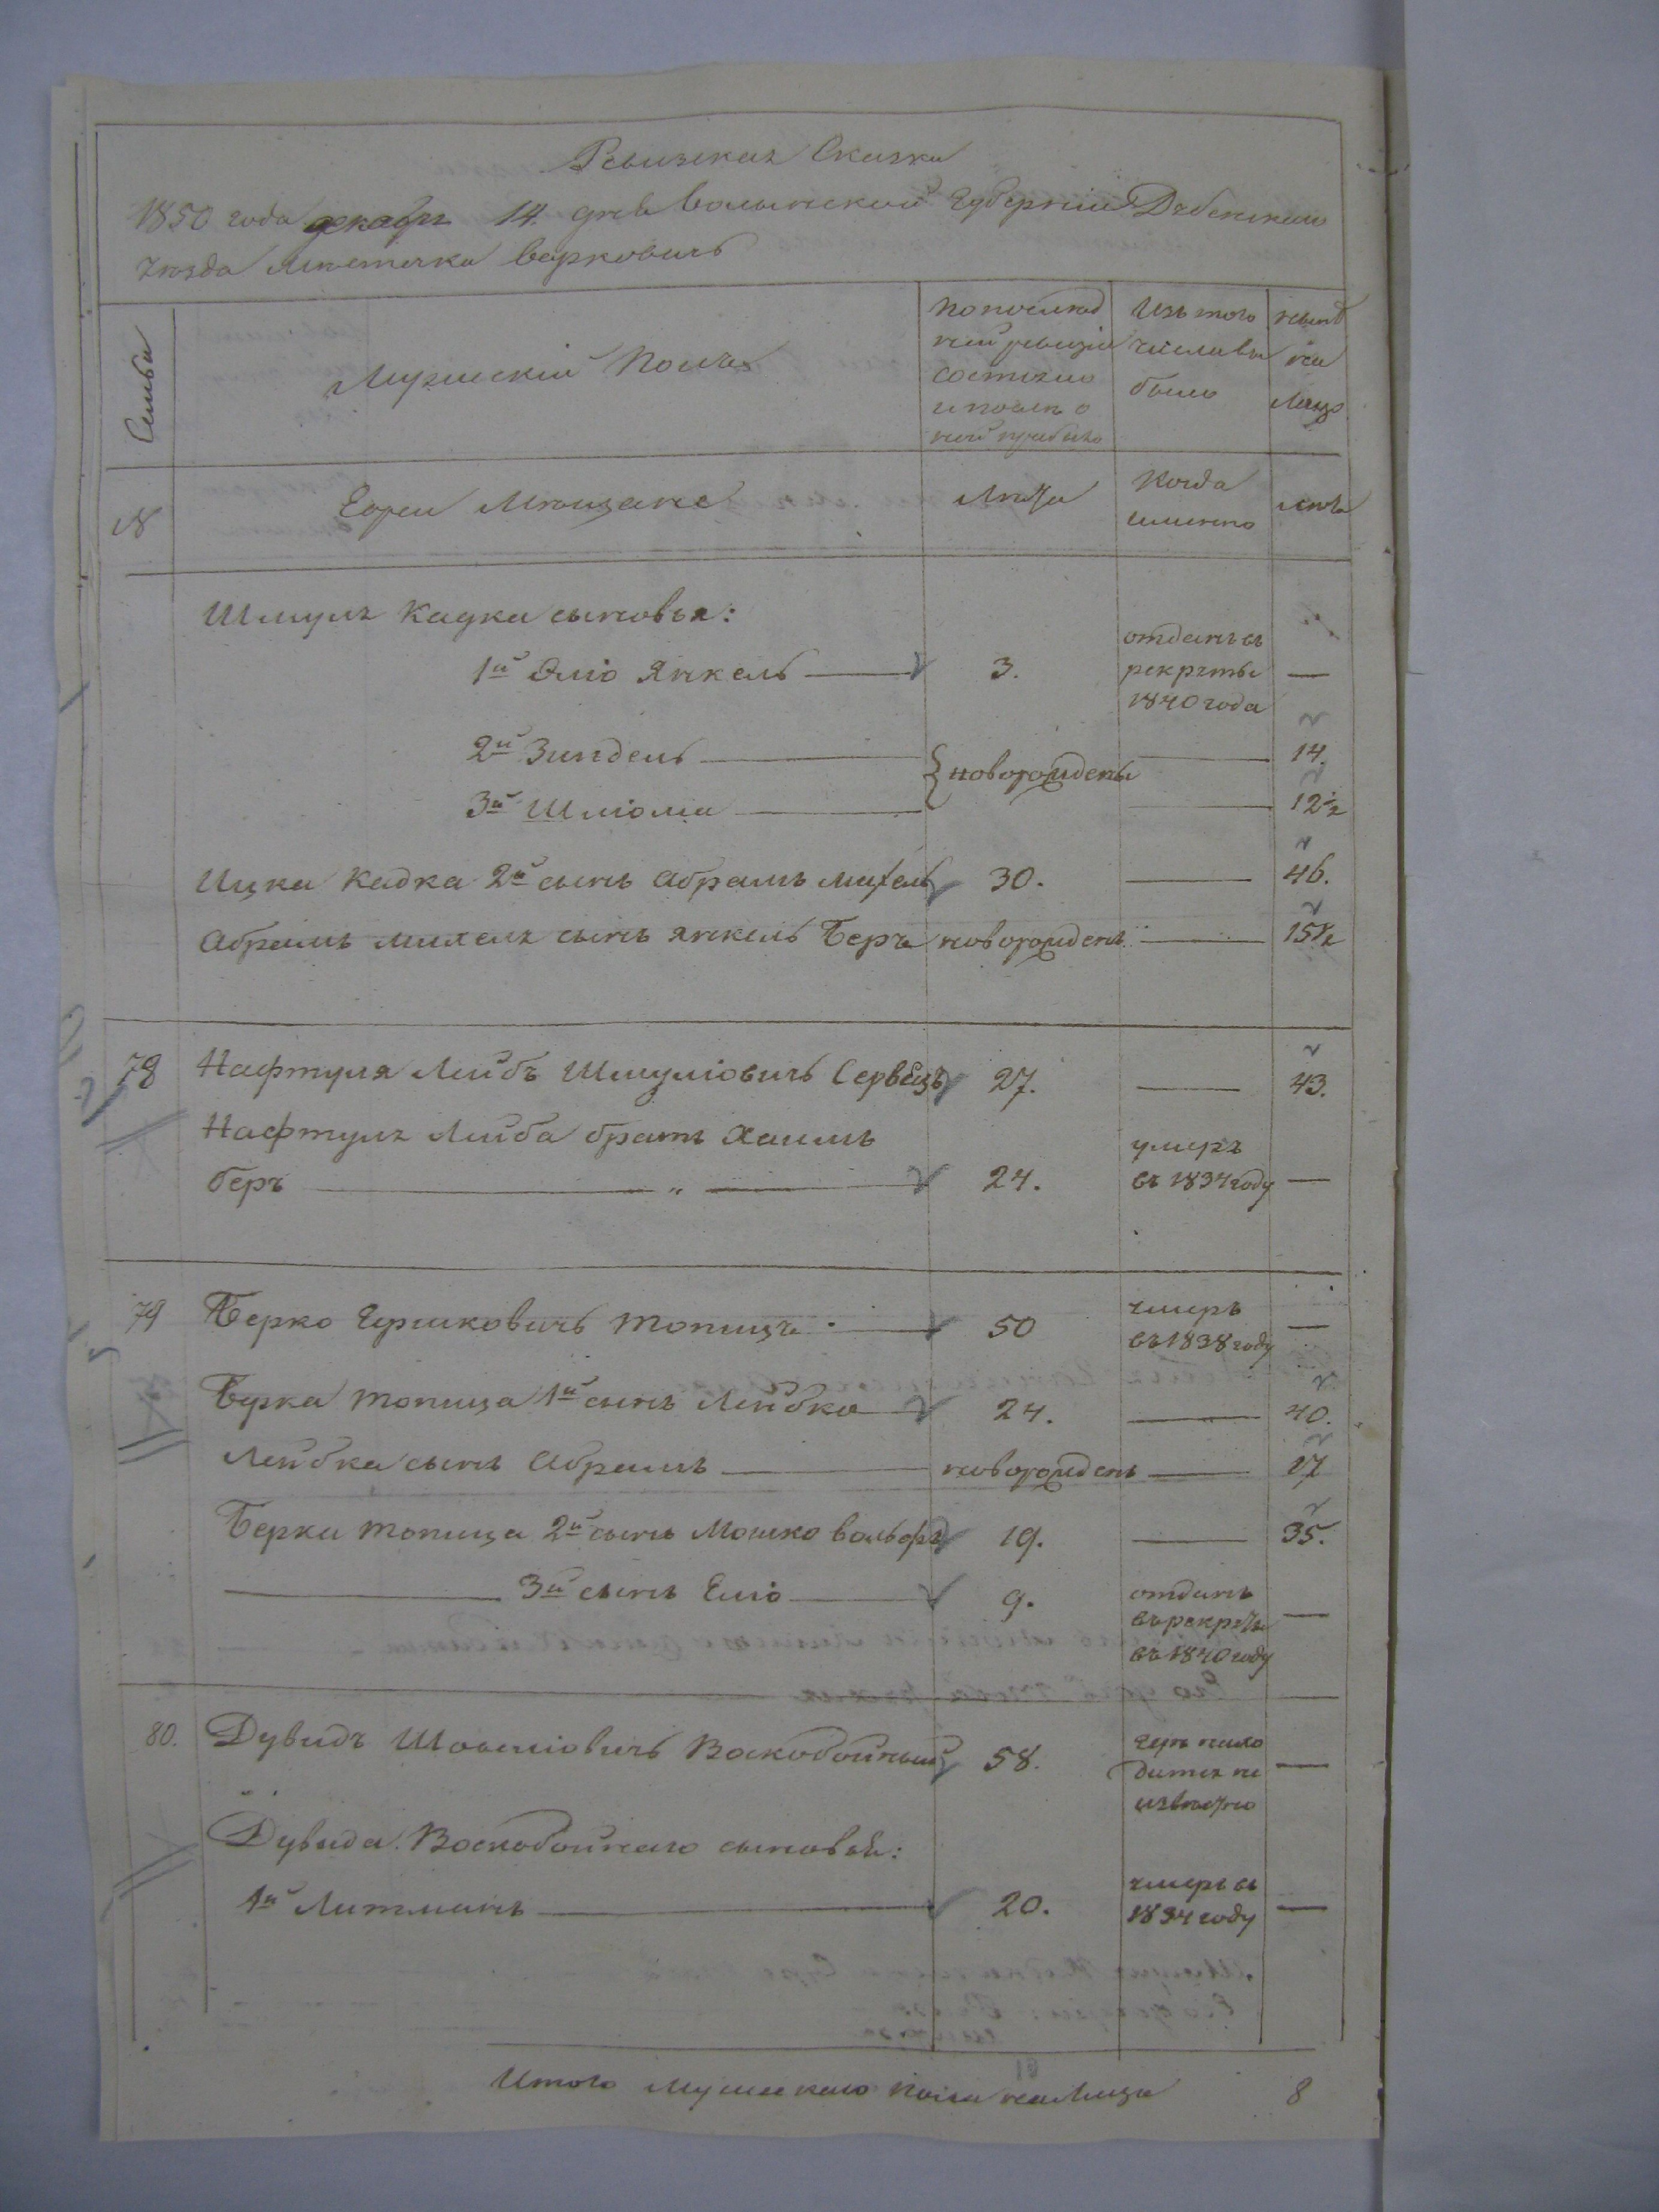 Ревизская Сказка
1850 года декабря 14 дня Волынской Губернии Дубенскаго
уезда местечка Верковичь
Семьи
Мужеский Полъ
По послед
ней ревизіи
состояло
и после о
ной прибыло
Изъ того
числа вы
было
ныне
на
лицо
№
Евреи Мещане
Лета
Когда
именно
лета
Шмуля Кадка сыновья:
1й Эліо Янкель 3. отданъ въ
рекруты —
1840 года
2й Зиндель новорожденъ — 14.
3й Шліома — 12½
Ицка Кадка 2й сынъ Абрамъ Михель 30. — 46.
Абрамъ Михеля сынъ Янкель Беръ новорожденъ — 15½
78 Нафтуля Лейбъ Шмуліовичь Сервецъ 27. — 43.
Нафтуля Лейба братъ Хаимъ
Беръ — " — 24. умеръ
въ 1834 году —
79 Берко Гершковичь Топицъ 50 умеръ
въ 1838 году —
Берка Топица 1й сынъ Лейбко 24. — 40.
Лейбка сынъ Абрамъ новорожденъ — 17
Берки Топица 2й сынъ Мошко Вольфъ 19. — 35.
— 3й сынъ Еліо 9. отданъ
въ рекруты —
въ 1840 году
80. Дувидъ Шовліовичь Воскобойный 58. где нахо
дится не —
известно
Дувида Воскобойнаго сыновей:
1й Литманъ 20. умеръ въ
1834 году —
Итого мужескаго пола на лицо 8